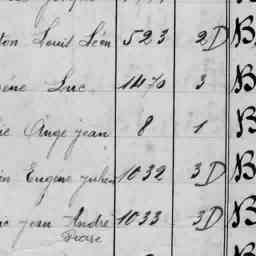 ton Louis Léon 523 2D B
éne Luc 1470 3 B
ie Ange jean 8 1 B
en Eugene julien 1032 3D B
ac jean André 1033 3D B
Pierre